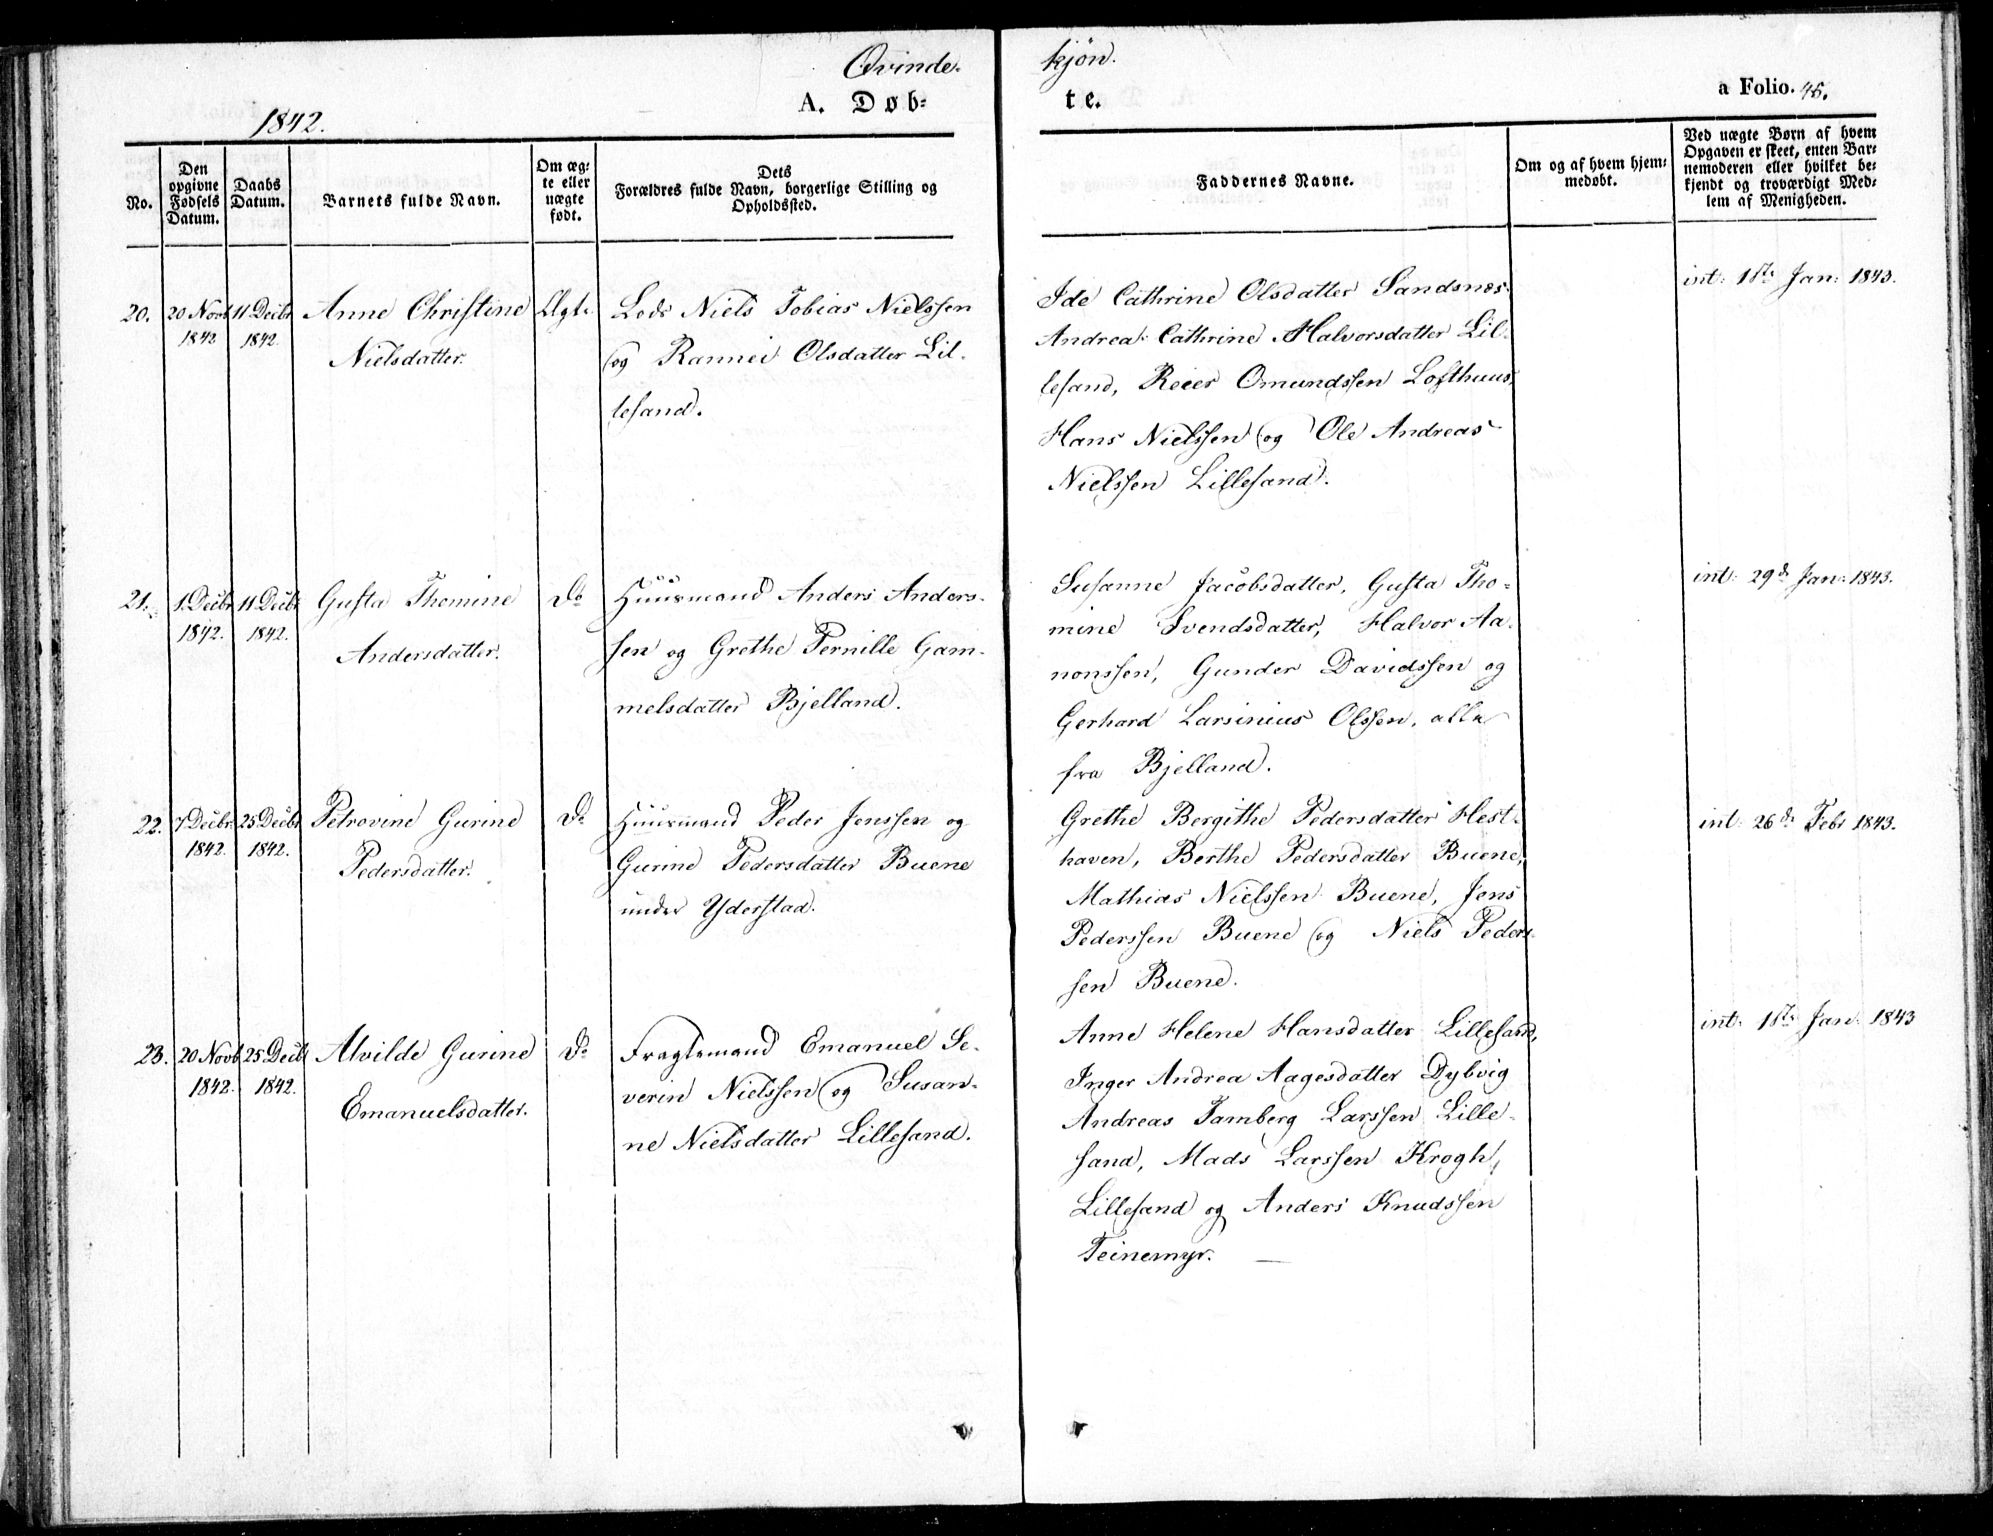 Qvinde-
kjøn.
A. Døb-
te.
a Folio. 46.
1842.
No.
Den opgivne Fødsels Datum.
Daabs Datum.
Barnets fulde Navn.
Om æg-
te eller
uægte
født.
Dets
Forældres fulde Navn, borgerlige Stilling og
Opholdssted.
Faddernes Navne.
Om og af hvem hjem-
medøbt.
Ved uægte Børn af hvem
Opgaven er skeet, enten Bar-
nemoderen eller hvilket be-
kjendt og troværdigt Med-
lem af Menigheden.
20.
20 Novb 1842
11 Decbr 1842.
Anne Christine
Nielsdatter.
Ægte
Lods Niels Tobias Nielssen
og Rannei Olsdatter Lil-
lesand.
Ide Cathrine Olsdatter Sandsnes
Andrea Cathrine Halvorsdatter Lil-
lesand, Reier Omundssen Lofthuus,
Hans Nielssen og Ole Andreas
Nielssen Lillesand.
int: 1ste Jan: 1843.
21.
1. Decbr 1842.
11 Decbr 1842.
Gusta Thomine
Andersdatter.
Do
Huusmand Anders Anders-
sen og Grethe Pernille Gam-
melsdatter Bjelland.
Susanne Jacobsdatter, Gusta Tho-
mine Svendsdatter, Halvor Aa-
nonssen, Gunder Davidssen og
Gerhard Larsinius Olssen, alle
fra Bjelland.
int: 29d Jan: 1843.
22.
7 Decbr. 1842.
25 Decbr 1842.
Petrovine Gurine
Pedersdatter.
Do
Huusmand Peder Jenssen og
Gurine Pedersdatter Buene
under Yderstad.
Grethe Bergithe Pedersdatter Hest-
haven, Berthe Pedersdatter Buene,
Mathias Nielssen Buene, Jens
Pederssen Buene og Niels Peders-
sen Buene.
int: 26de Febr 1843.
23.
20 Novb 1842.
25 Decbr 1842.
Alvilde Gurine
Emanuelsdatter.
Do
Fragtemand Emanuel Se-
verin Nielssen og Susan-
ne Nielsdatter Lillesand.
Anne Helene Hansdatter Lillesand,
Inger Andrea Aagesdatter Dybvig
Andreas Tamberg Larssen Lille-
sand, Mads Larssen Krogh,
Lillesand og Anders Knudssen
Teinemyr.
int: 1ste Jan: 1843